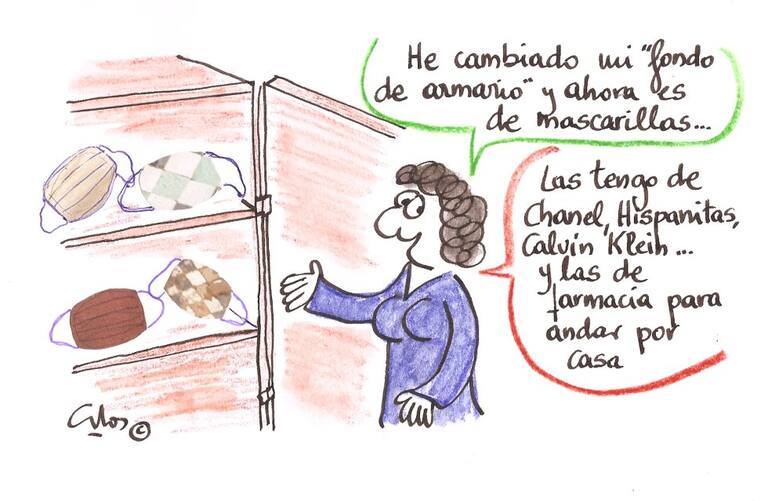 He cambiado mi "fondo
de armario" y ahora es
de mascarillas...
Las tengo de
Chanel, Hispanitas,
Calvin Klein...
y las de
farmacia para
andar por
casa